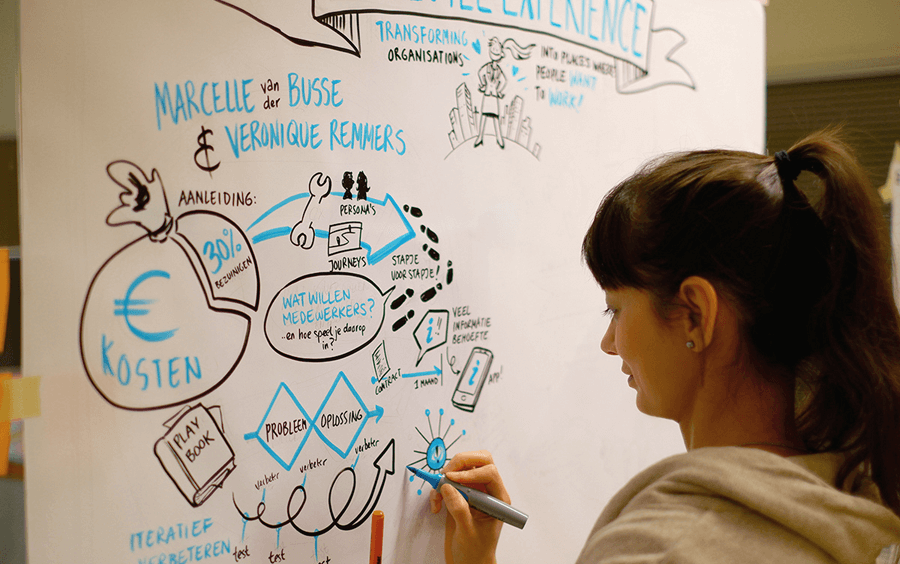 EXPERIENCE
TRANSFORMING
ORGANISATIONS
INTO PLACES WHERE
PEOPLE WANT
TO WORK!
MARCELLE van der BUSSE
& VERONIQUE REMMERS
AANLEIDING:
30%
BEZUINIGEN
€
KOSTEN
PERSONA'S
JOURNEYS
STAPJE
VOOR STAPJE!
WAT WILLEN
MEDEWERKERS?
..en hoe speel je daarop
in?
VEEL
INFORMATIE
BEHOEFTE
i
CONTRACT
1 MAAND
i
APP!
PLAY
BOOK
PROBLEEM
OPLOSSING
verbeter
verbeter
verbeter
!
ITERATIEF
VERBETEREN
test
test
test